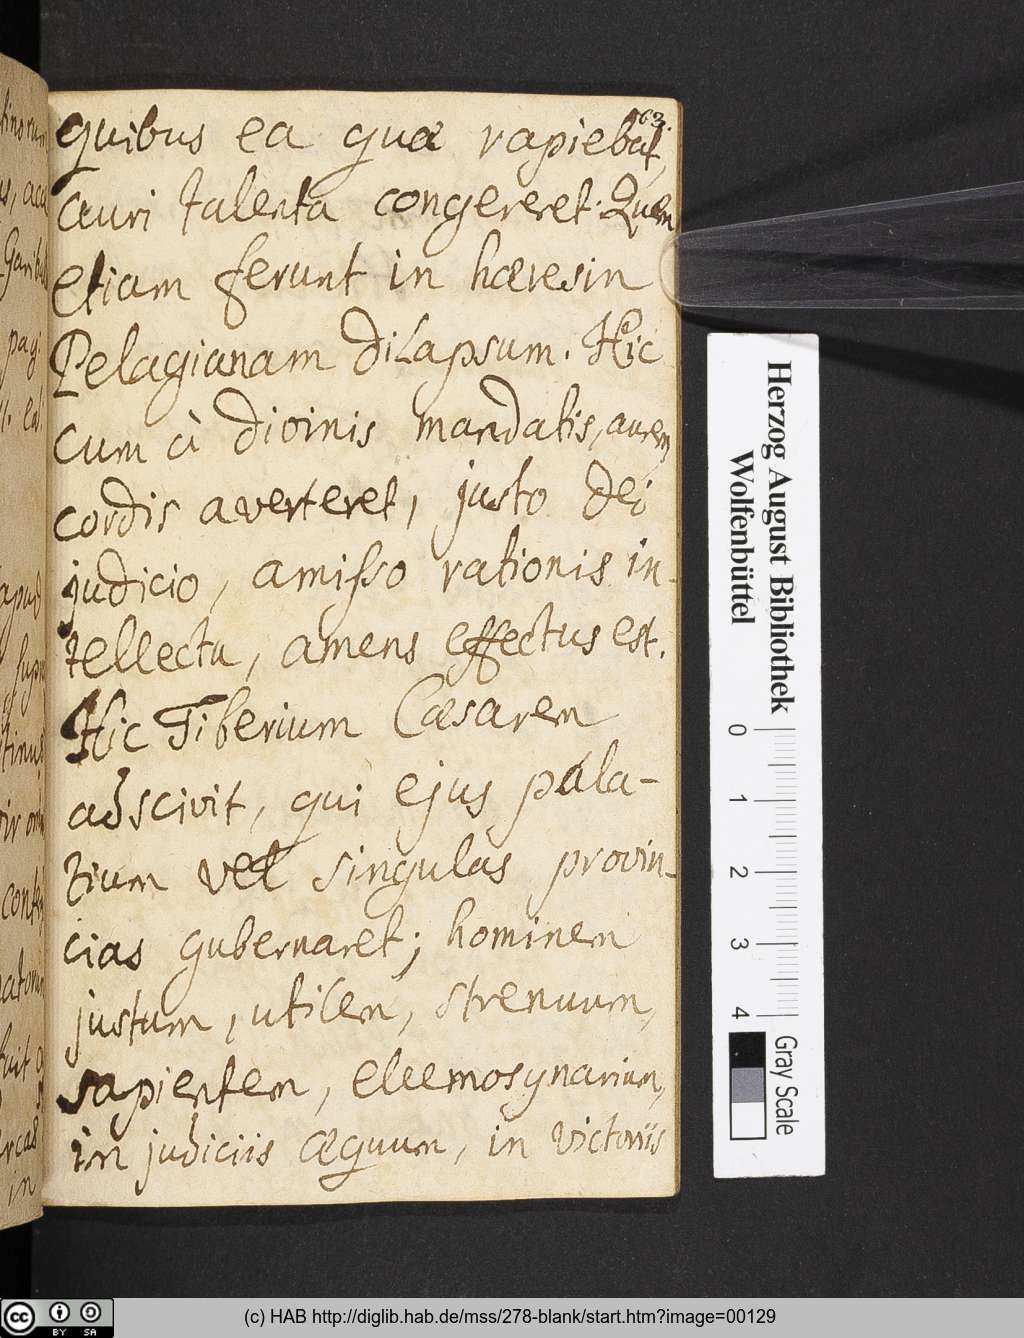 63.
quibus ea quæ rapiebat,
auri talenta congereret. Quem
etiam ferunt in hæresin
Pelagianam dilapsum. Hic
cum à divinis mandatis, aurem
cordis averteret, justo dei
judicio, amisso rationis in-
tellectu, amens effectus est.
Hic Tiberium Cæsarem
adscivit, qui ejus pala-
tium vel singulas provin-
cias gubernaret; hominem
justum, utilem, strenuum,
sapientem, eleemosynarium,
in judiciis æquum, in victoriis
Herzog August Bibliothek
Wolfenbüttel
0 1 2 3 4
Gray Scale
(c) HAB http://diglib.hab.de/mss/278-blank/start.htm?image=00129
cc BY SA